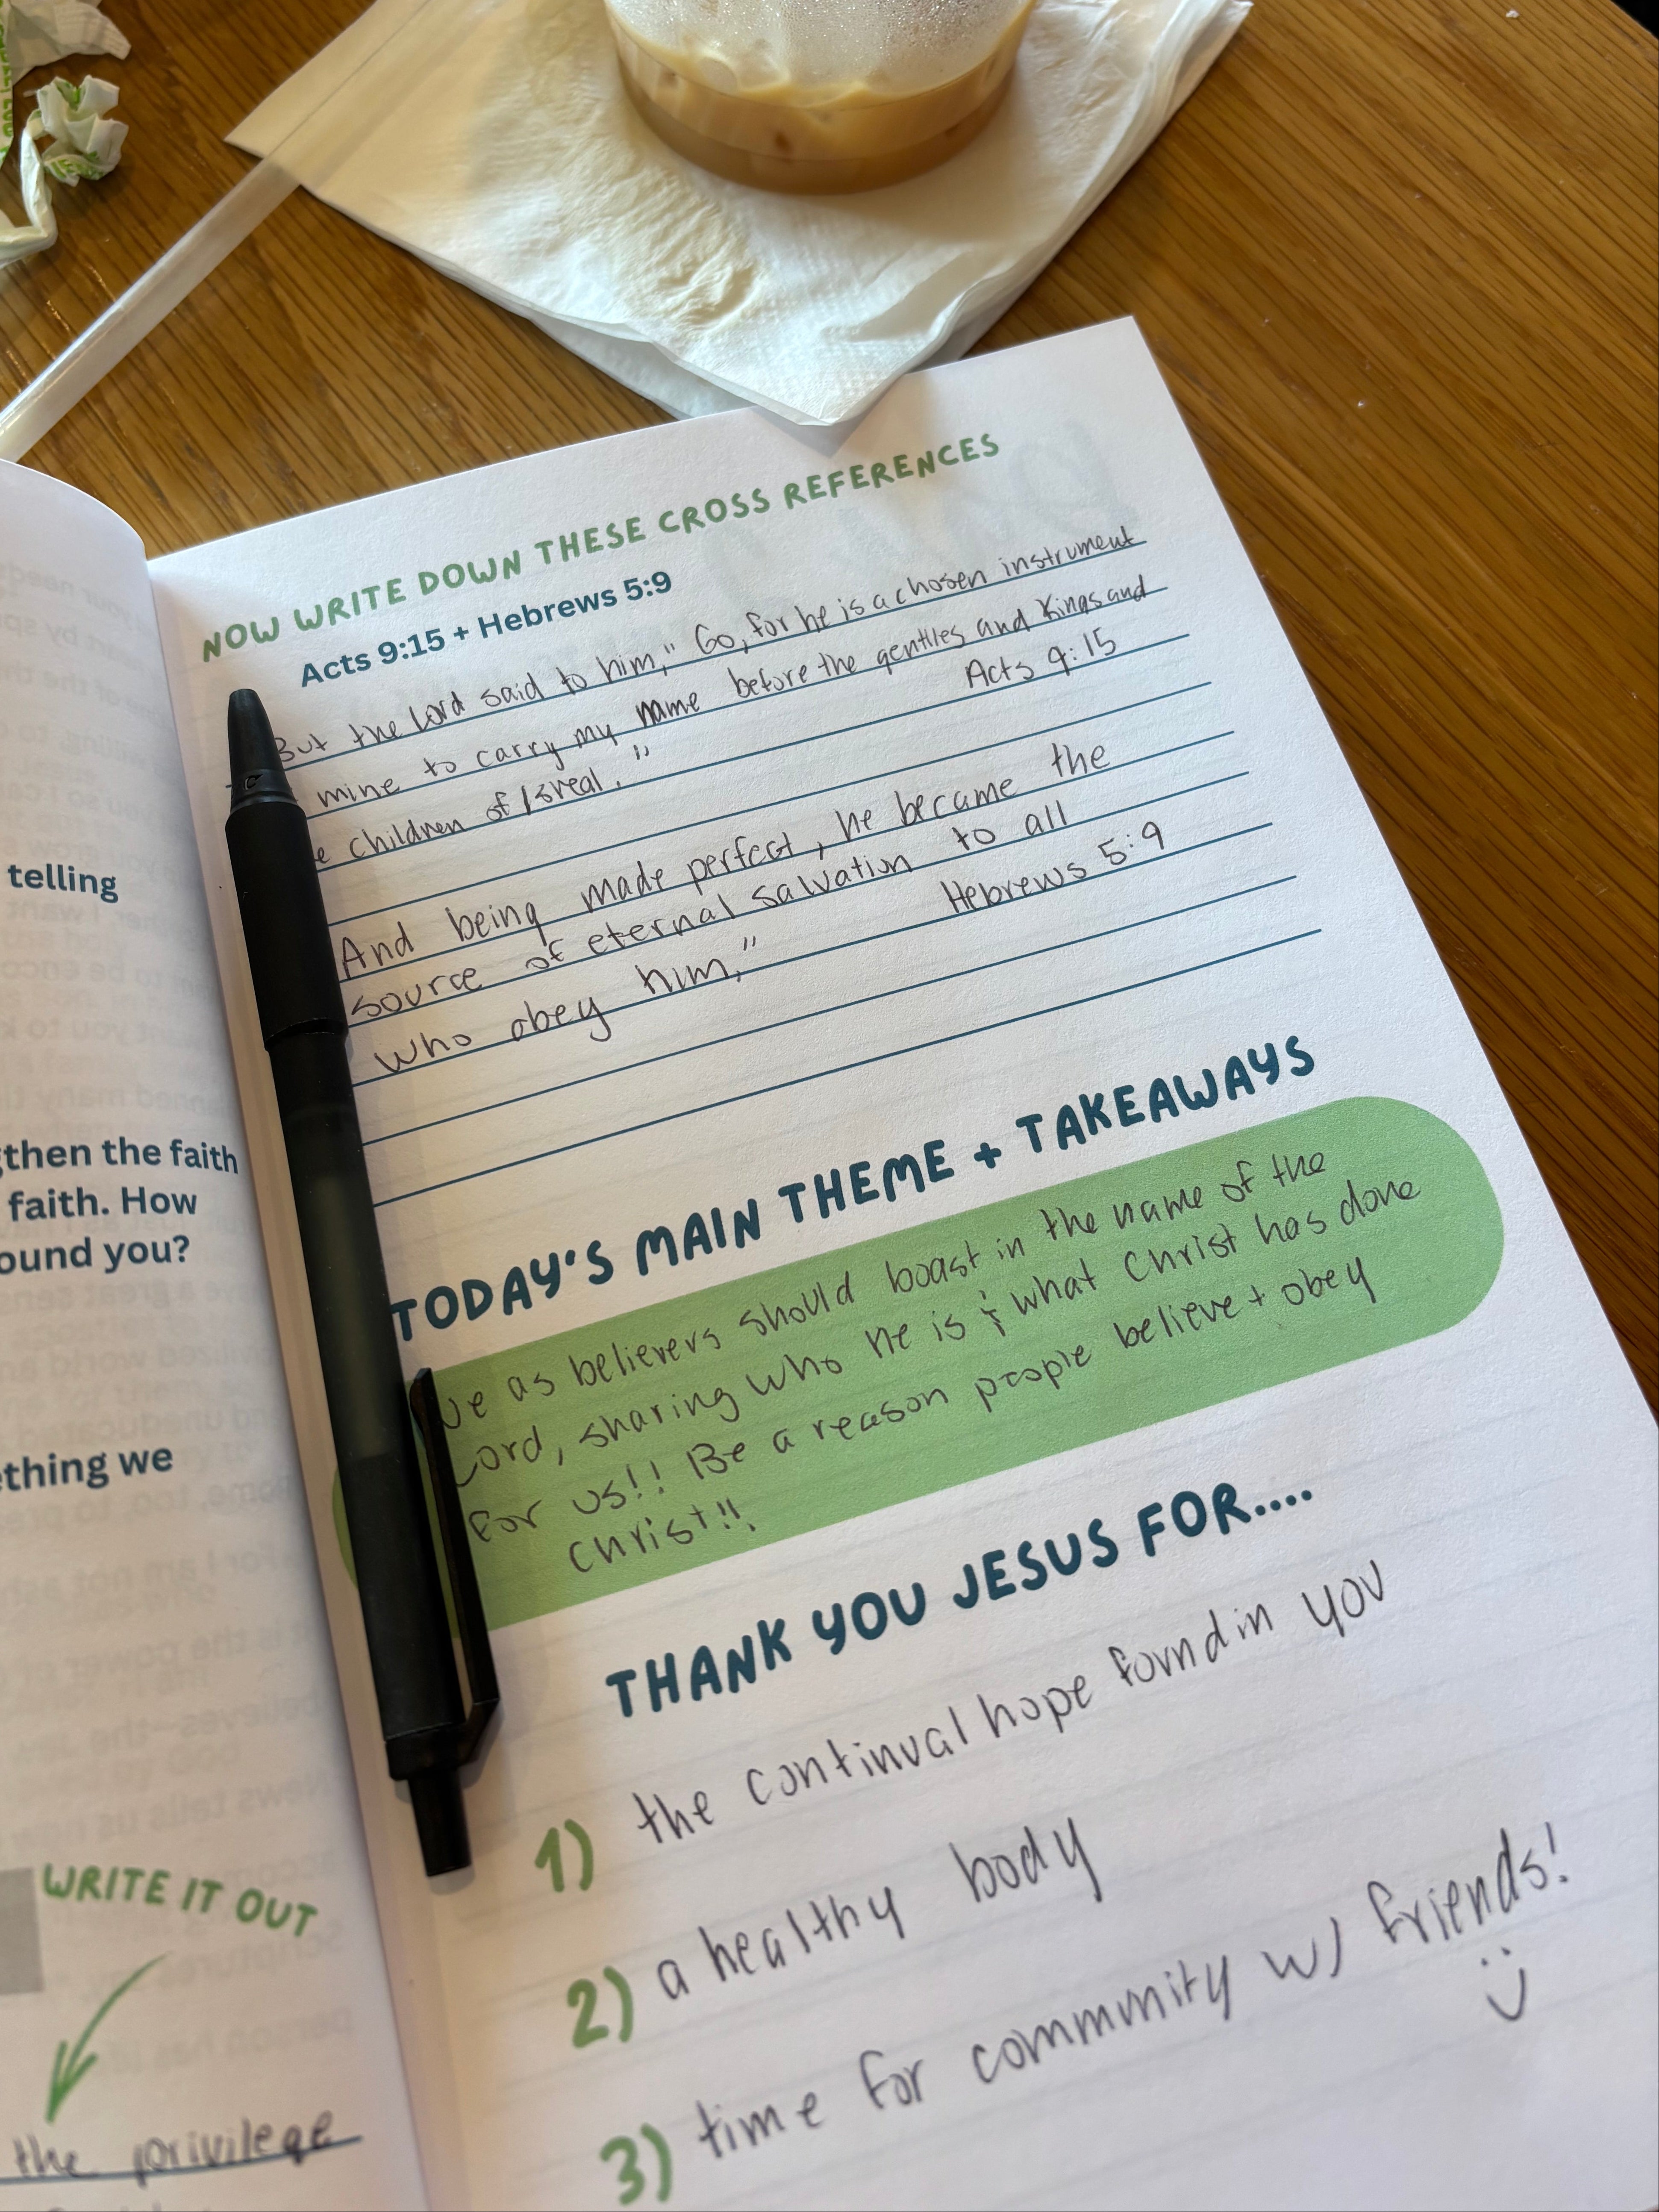 NOW WRITE DOWN THESE CROSS REFERENCES
Acts 9:15 + Hebrews 5:9
But the Lord said to him," Go, for he is a chosen instrument
mine to carry my name before the gentiles and kings and
e children of Isreal." Acts 9:15
And being made perfect, he became the
source of eternal salvation to all
who obey him," Hebrews 5:9
TODAY'S MAIN THEME + TAKEAWAYS
We as believers should boast in the name of the
Lord, sharing who he is & what Christ has done
for us!! Be a reason people believe + obey
Christ!!
THANK YOU JESUS FOR....
1) the continual hope found in you
2) a healthy body
3) time for community w/ friends!
:)
telling
gthen the faith
faith. How
ound you?
ething we
WRITE IT OUT
the privilege